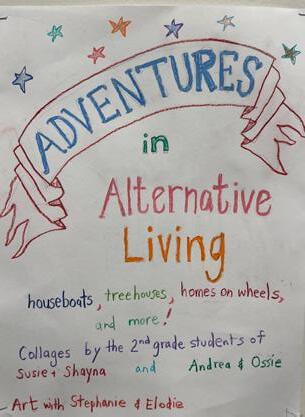 ADVENTURES
in
Alternative
Living
houseboats, treehouses, homes on wheels,
and more!
Collages by the 2nd grade students of
Susie + Shayna and Andrea & Ossie
Art with Stephanie & Elodie